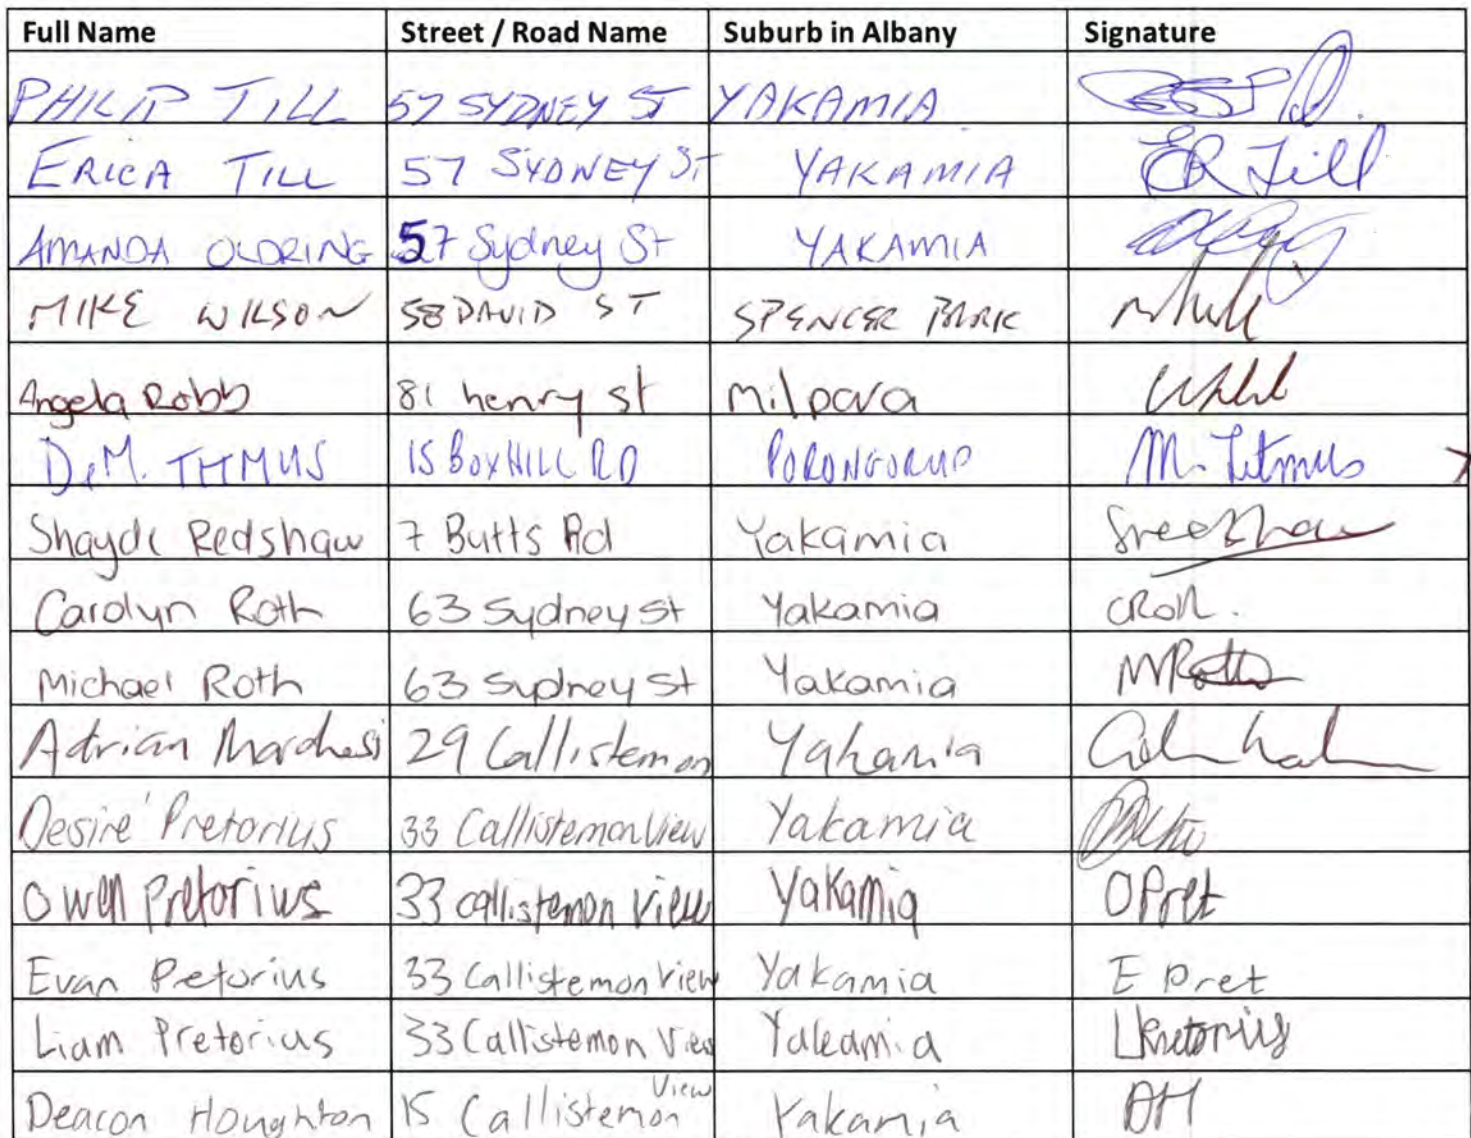 Full Name Street / Road Name Suburb in Albany Signature
PHILIP TILL 57 SYDNEY ST YAKAMIA
ERICA TILL 57 SYDNEY ST YAKAMIA ER Till
AMANDA OLDRING 57 Sydney St YAKAMIA
MIKE WILSON 58 DAVID ST SPENCER PARK
Angela Robb 81 henry st milpara
D.M. TITMUS 15 BOXHILL RD PORONGORUP M. Titmus
Shayde Redshaw 7 Butts Rd Yakamia
Carolyn Roth 63 Sydney st Yakamia CRoth.
Michael Roth 63 Sydney st Yakamia MRoth
Adrian Marchesi 29 Callistemon Yakamia
Desiré Pretorius 33 Callistemon View Yakamia
Owen Pretorius 33 callistemon view Yakamia O Pret
Evan Pretorius 33 Callistemon View Yakamia E Pret
Liam Pretorius 33 Callistemon View Yakamia LPretorius
Deacon Houghton 15 Callistemon View Yakamia DH